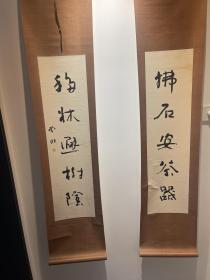 拂石安茶器
移床選樹陰